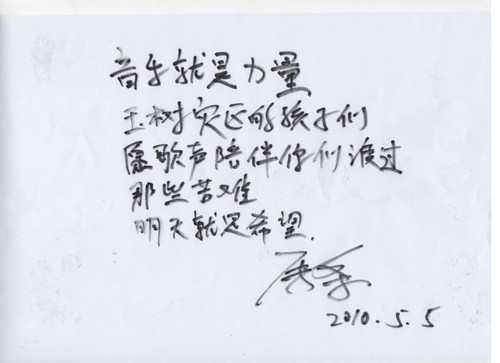 音乐就是力量
玉树灾区的孩子们
愿歌声陪伴你们渡过
那些苦难
明天就是希望.
2010.5.5